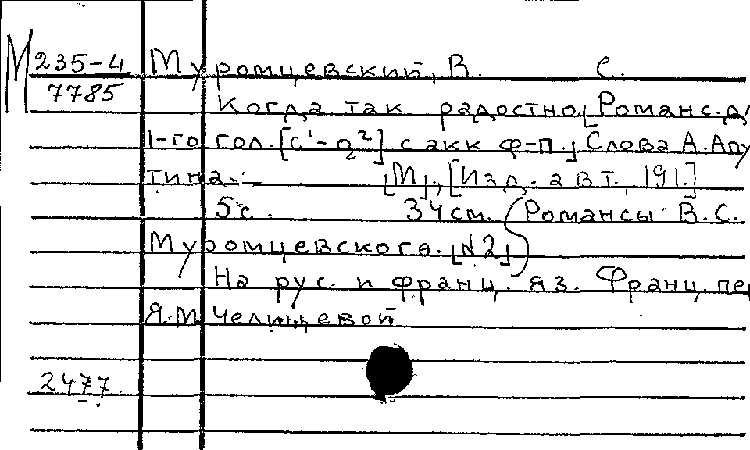 М 235-4 Муромцевский, В. С.
7785
Когда так радостно, [Романс д/
1-го гол. [c¹-g²] с акк ф-п.] Слова А. Апу
тина. [М], [Изд. авт., 191.]
5 с. 34 см. (Романсы В. С.
Муромцевского. [N2])
На рус. и франц. яз. Франц. пе
Я. М. Челищевой
2477